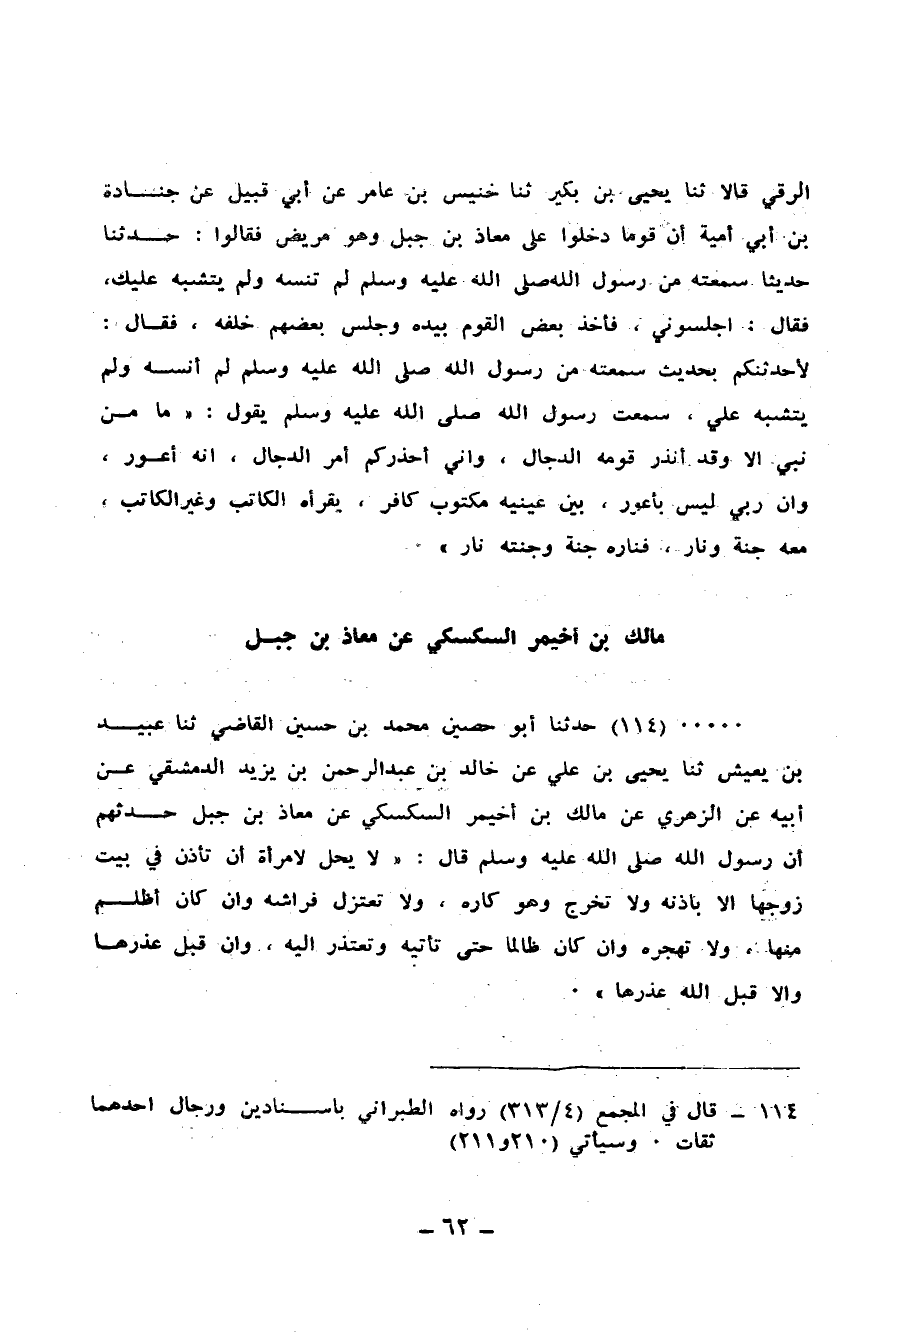 الرقي قالا ثنا يحيى بن بكير ثنا خنيس بن عامر عن أبي قبيل عن جنـــادة
بن أبي أمية أن قوما دخلوا على معاذ بن جبل وهو مريض فقالوا : حـــدثنا
حديثا سمعته من رسول الله صلى الله عليه وسلم لم تنسه ولم يتشبه عليك،
فقال : اجلسوني ، فأخذ بعض القوم بيده وجلس بعضهم خلفه ، فقـال :
لأحدثنكم بحديث سمعته من رسول الله صلى الله عليه وسلم لم أنســه ولم
يتشبه علي ، سمعت رسول الله صلى الله عليه وسلم يقول : « ما مـن
نبي الا وقد أنذر قومه الدجال ، واني أحذركم أمر الدجال ، انه أعـور ،
وان ربي ليس بأعور ، بين عينيه مكتوب كافر ، يقرأه الكاتب وغير الكاتب ،
معه جنة ونار ، فناره جنة وجنته نار » ٠
مالك بن أخيمر السكسكي عن معاذ بن جبـل
٠٠٠٠٠ (١١٤) حدثنا أبو حصين محمد بن حسين القاضي ثنا عبيـــد
بن يعيش ثنا يحيى بن علي عن خالد بن عبدالرحمن بن يزيد الدمشقي عـن
أبيه عن الزهري عن مالك بن أخيمر السكسكي عن معاذ بن جبل حـــدثهم
أن رسول الله صلى الله عليه وسلم قال : « لا يحل لامرأة أن تأذن في بيت
زوجها الا باذنه ولا تخرج وهو كاره ، ولا تعتزل فراشه وان كان أظلـــم
منها ، ولا تهجره وان كان ظالما حتى تأتيه وتعتذر اليه ، وان قبل عذرهـا
والا قبل الله عذرها » ٠
١١٤ ــ قال في المجمع (٣١٣/٤) رواه الطبراني باســـنادين ورجال احدهما
ثقات ٠ وسيأتي (٢١٠و٢١١)
ــ ٦٢ ــ